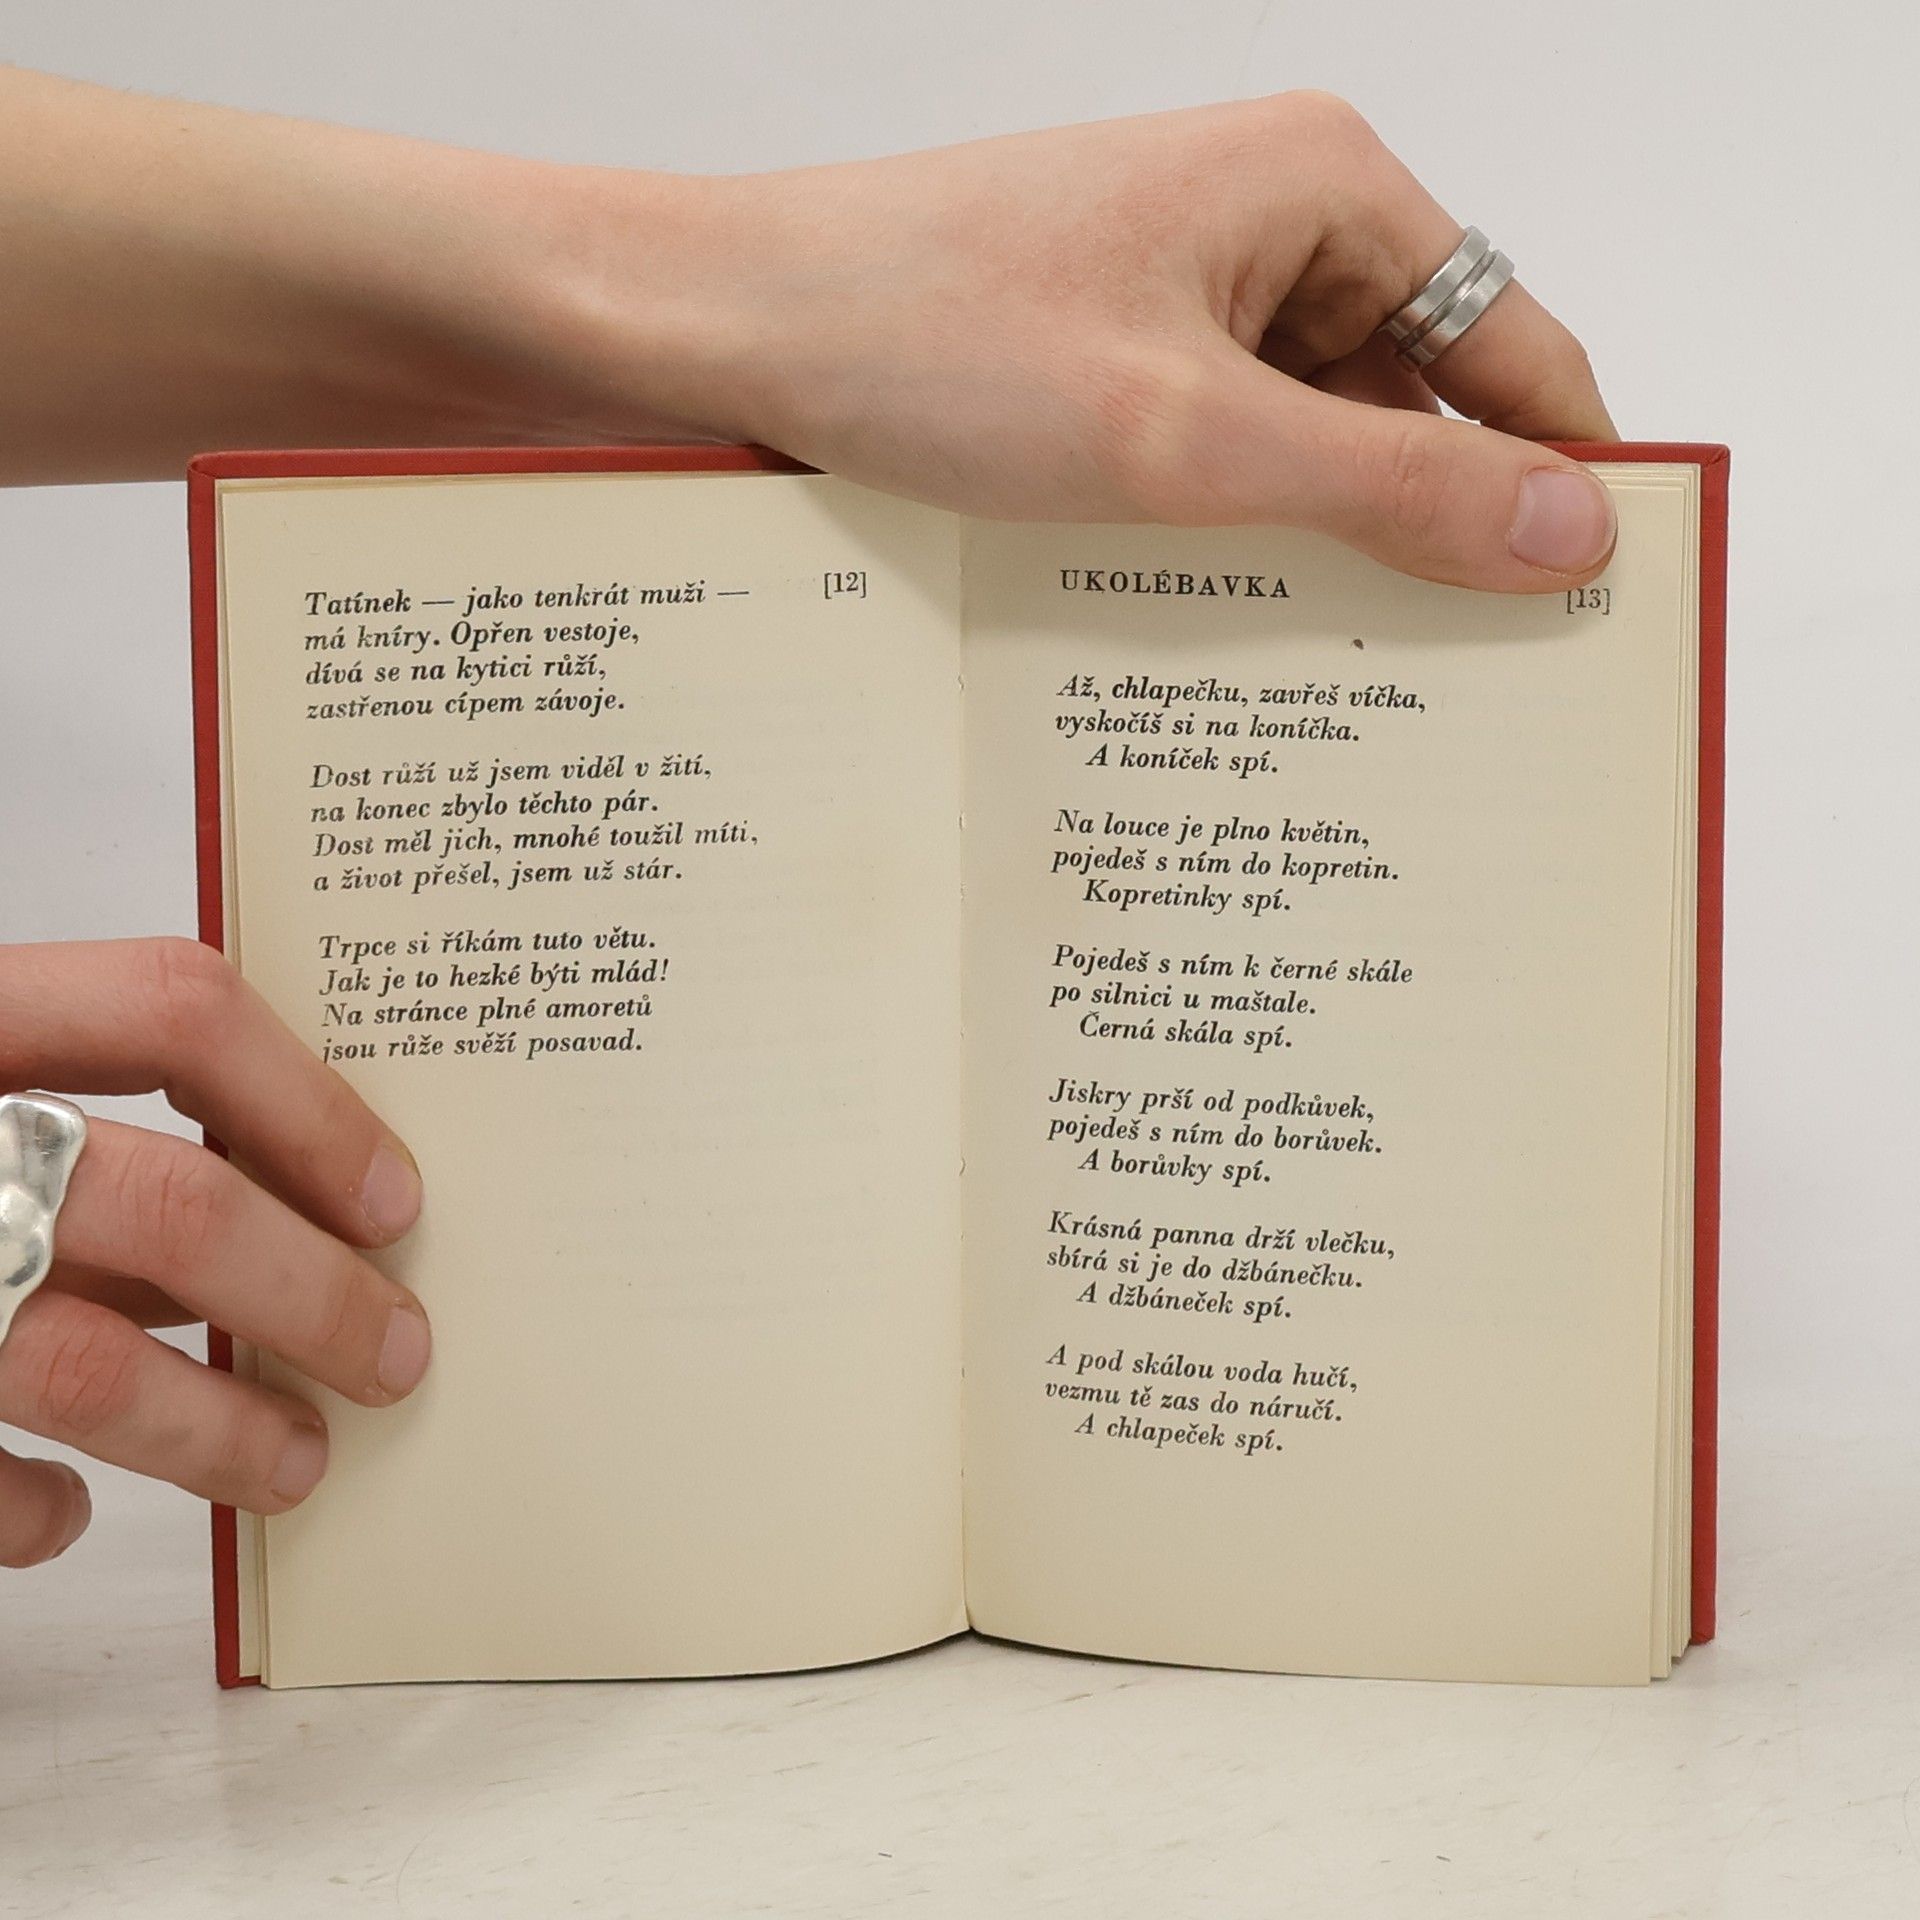 [12]
Tatínek — jako tenkrát muži —
má kníry. Opřen vestoje,
dívá se na kytici růží,
zastřenou cípem závoje.
Dost růží už jsem viděl v žití,
na konec zbylo těchto pár.
Dost měl jich, mnohé toužil míti,
a život přešel, jsem už stár.
Trpce si říkám tuto větu.
Jak je to hezké býti mlád!
Na stránce plné amoretů
jsou růže svěží posavad.
UKOLÉBAVKA
[13]
Až, chlapečku, zavřeš víčka,
vyskočíš si na koníčka.
A koníček spí.
Na louce je plno květin,
pojedeš s ním do kopretin.
Kopretinky spí.
Pojedeš s ním k černé skále
po silnici u maštale.
Černá skála spí.
Jiskry prší od podkůvek,
pojedeš s ním do borůvek.
A borůvky spí.
Krásná panna drží vlečku,
sbírá si je do džbánečku.
A džbáneček spí.
A pod skálou voda hučí,
vezmu tě zas do náručí.
A chlapeček spí.